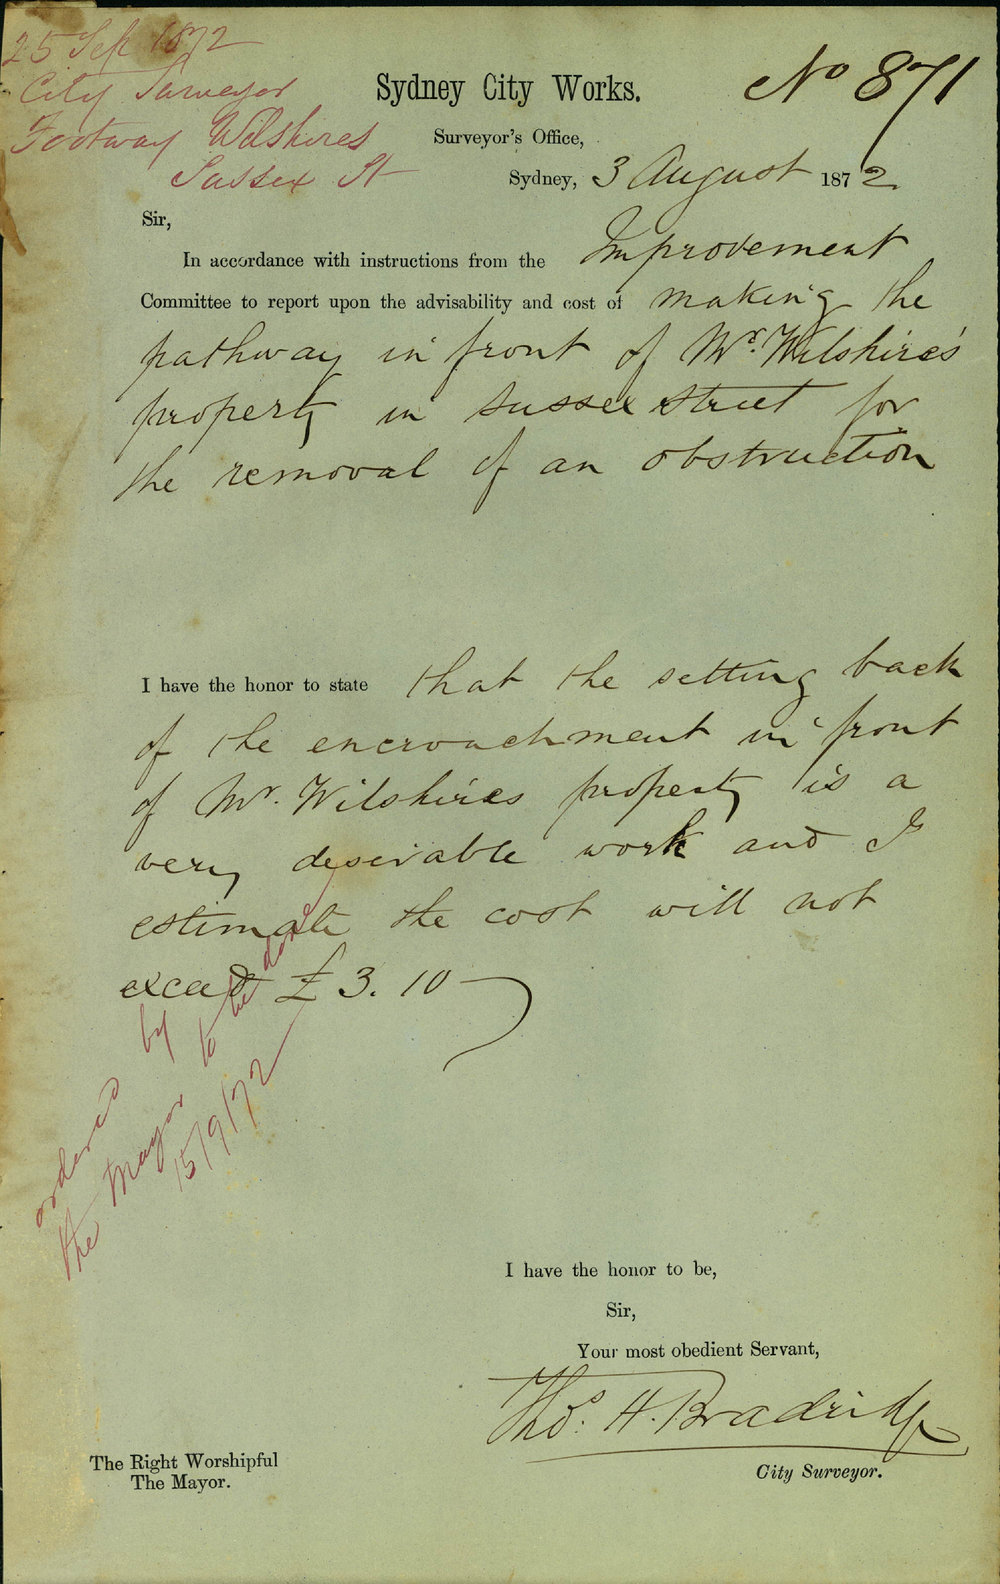 25 Sep 1872
City Surveyor
Footway Wilshires
Sussex St
No 871
Sydney City Works.
Surveyor's Office,
Sydney, 3 August 1872
Sir,
In accordance with instructions from the Improvement
Committee to report upon the advisability and cost of making the
pathway in front of Mr. Wilshire's
property in Sussex Street for
the removal of an obstruction
I have the honor to state that the setting back
of the encroachment in front
of Mr. Wilshires property is a
very desirable work and I
estimate the cost will not
exceed £3.10
ordered by
the Mayor to be done
15/9/72
I have the honor to be,
Sir,
Your most obedient Servant,
Thos. H. Bradridge
City Surveyor.
The Right Worshipful
The Mayor.